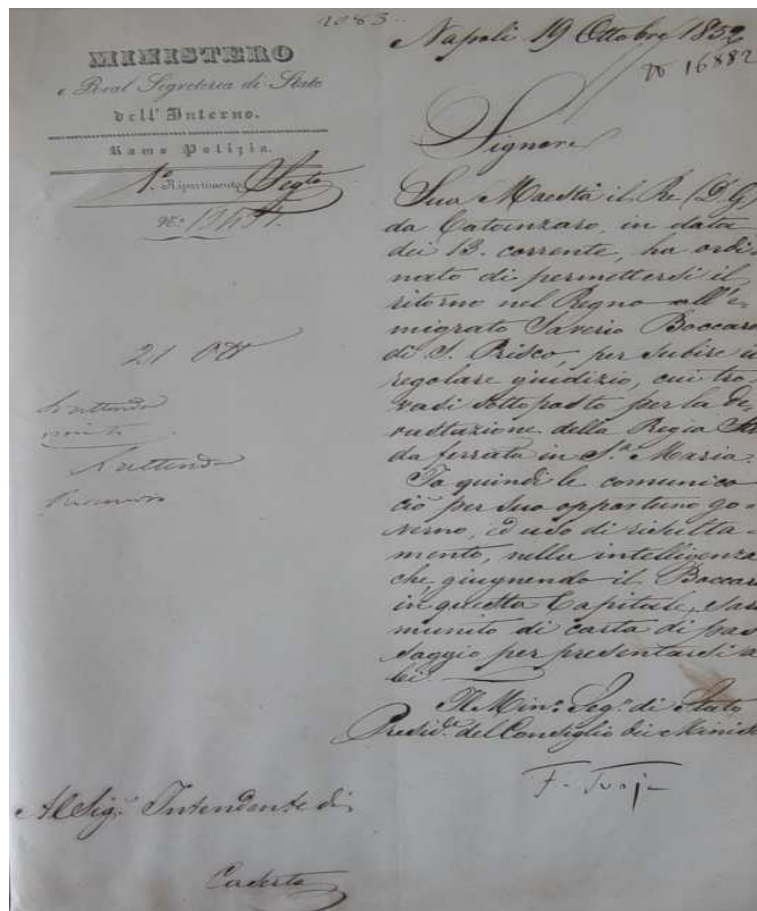 Napoli 19 Ottobre 1852
16882
MINISTERO
e Real Segreteria di Stato
dell' Interno.
Ramo Polizia.
1.º Ripartimento Segto
Nº:
21 Ott
Al Sig.r Intendente di
Caserta
Signore
Sua Maestà il Re (D.G.)
da Catanzaro, in data
dei 13. corrente, ha ordi-
nato di permettersi il
ritorno nel Regno all'e-
migrato Saverio Boccard
di S. Prisco, per subire i
regolare giudizio, cui tro-
vasi sottoposto per la de-
vastazione della Regia Str
da ferrata in S.ª Maria.
Io quindi le comunico
ciò per suo opportuno go-
verno, ed uso di risulta-
mento, nella intelligenza
che giugnendo il Boccar
in questa Capitale, sar
munito di carta di pas
saggio per presentarsi a
lei.
Il Min.º Seg.º di Stato
Presid.e del Consiglio dei Minist